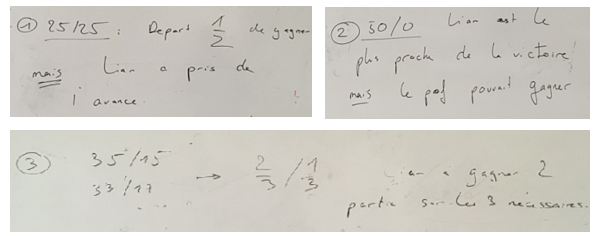 ① 25/25 : Depart 1/2 de gagner
mais Lian a pris de
l'avance.
② 50/0 Lian est le
plus proche de la victoire
mais le prof pouvait gagner
③ 35/15
33/17 → 2/3 / 1/3
Lian a gagner 2
partie sur les 3 nécessaires.